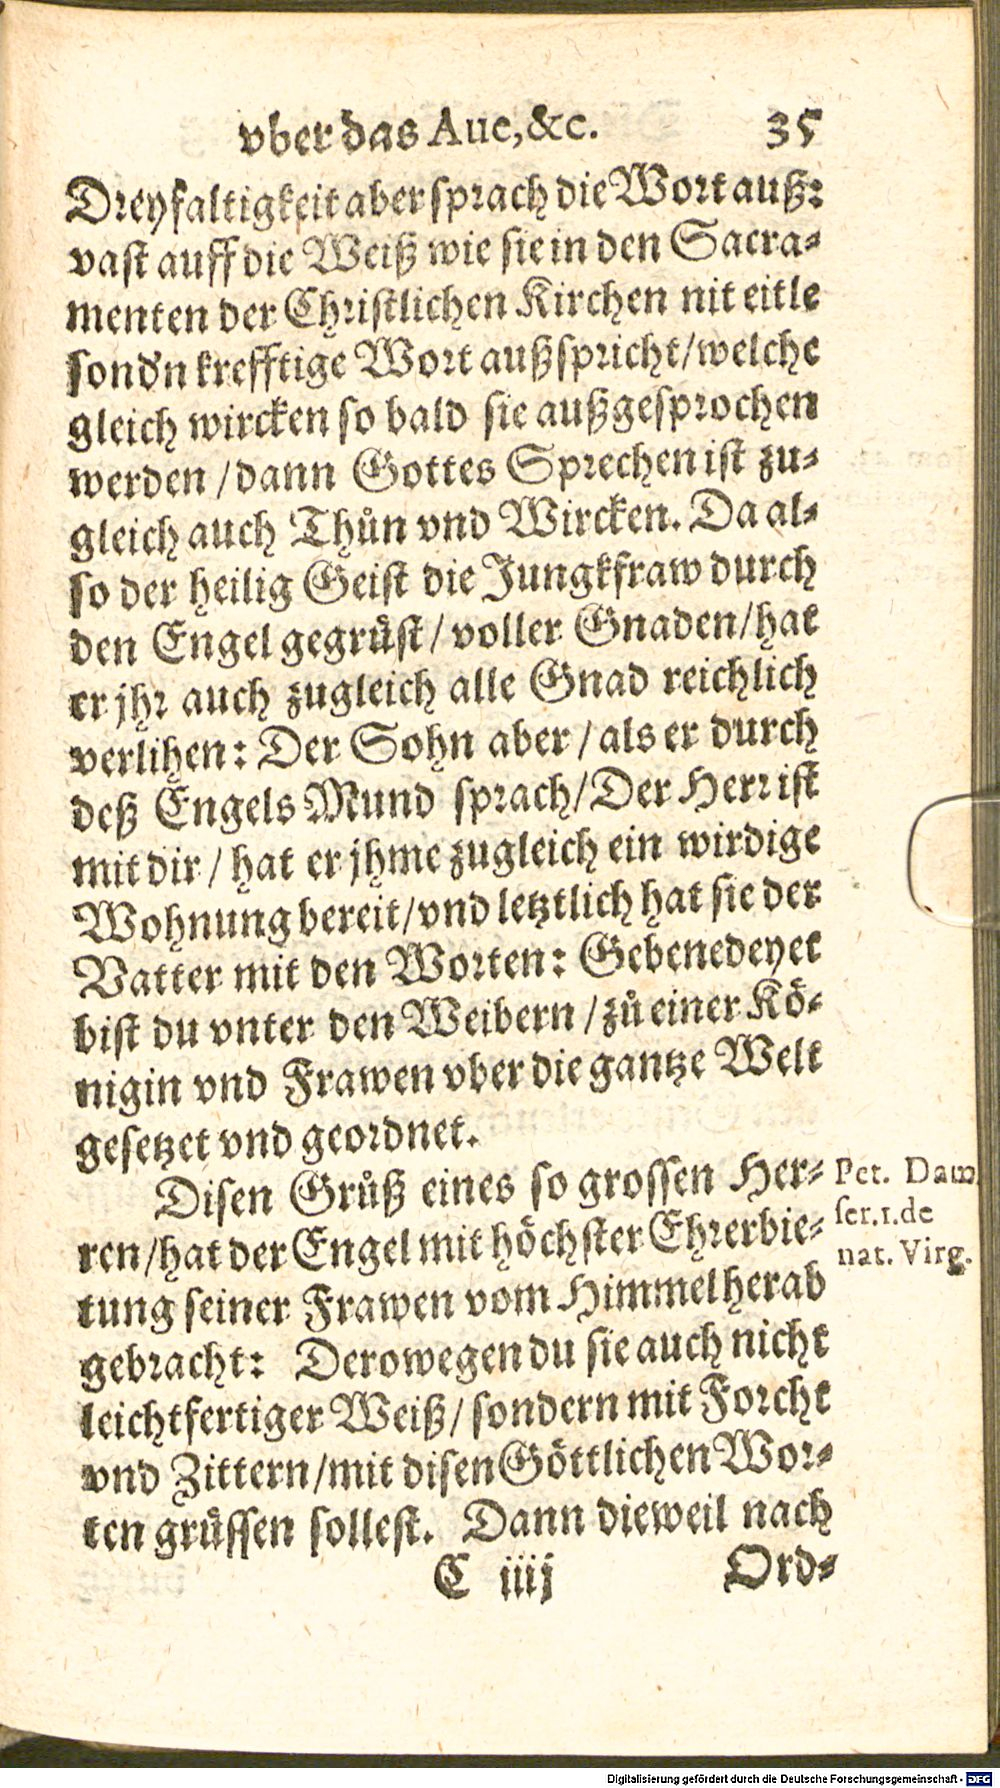 vber das Aue, &c. 35
Dreyfaltigkeit aber sprach die Wort auß:
vast auff die Weiß wie sie in den Sacra-
menten der Christlichen Kirchen nit eitle
sond'n krefftige Wort außspricht/welche
gleich wircken so bald sie außgesprochen
werden /dann Gottes Sprechen ist zu-
gleich auch Thůn vnd Wircken. Da al-
so der heilig Geist die Jungkfraw durch
den Engel gegrůst/ voller Gnaden/hat
er jhr auch zugleich alle Gnad reichlich
verlihen: Der Sohn aber / als er durch
deß Engels Mund sprach/Der Herr ist
mit dir / hat er jhme zugleich ein wirdige
Wohnung bereit/vnd letztlich hat sie der
Vatter mit den Worten: Gebenedeyet
bist du vnter den Weibern /zů einer Kö-
nigin vnd Frawen vber die gantze Welt
gesetzet vnd geordnet.
Disen Grůß eines so grossen Her-
ren/hat der Engel mit höchster Ehrerbie-
tung seiner Frawen vom Himmel herab
gebracht: Derowegen du sie auch nicht
leichtfertiger Weiß/ sondern mit Forcht
vnd Zittern/mit disen Göttlichen Wor-
ten grůssen sollest. Dann dieweil nach
Pet. Dam.
ser.1.de
nat. Virg.
C iiij Ord-
Digitalisierung gefördert durch die Deutsche Forschungsgemeinschaft - DFG